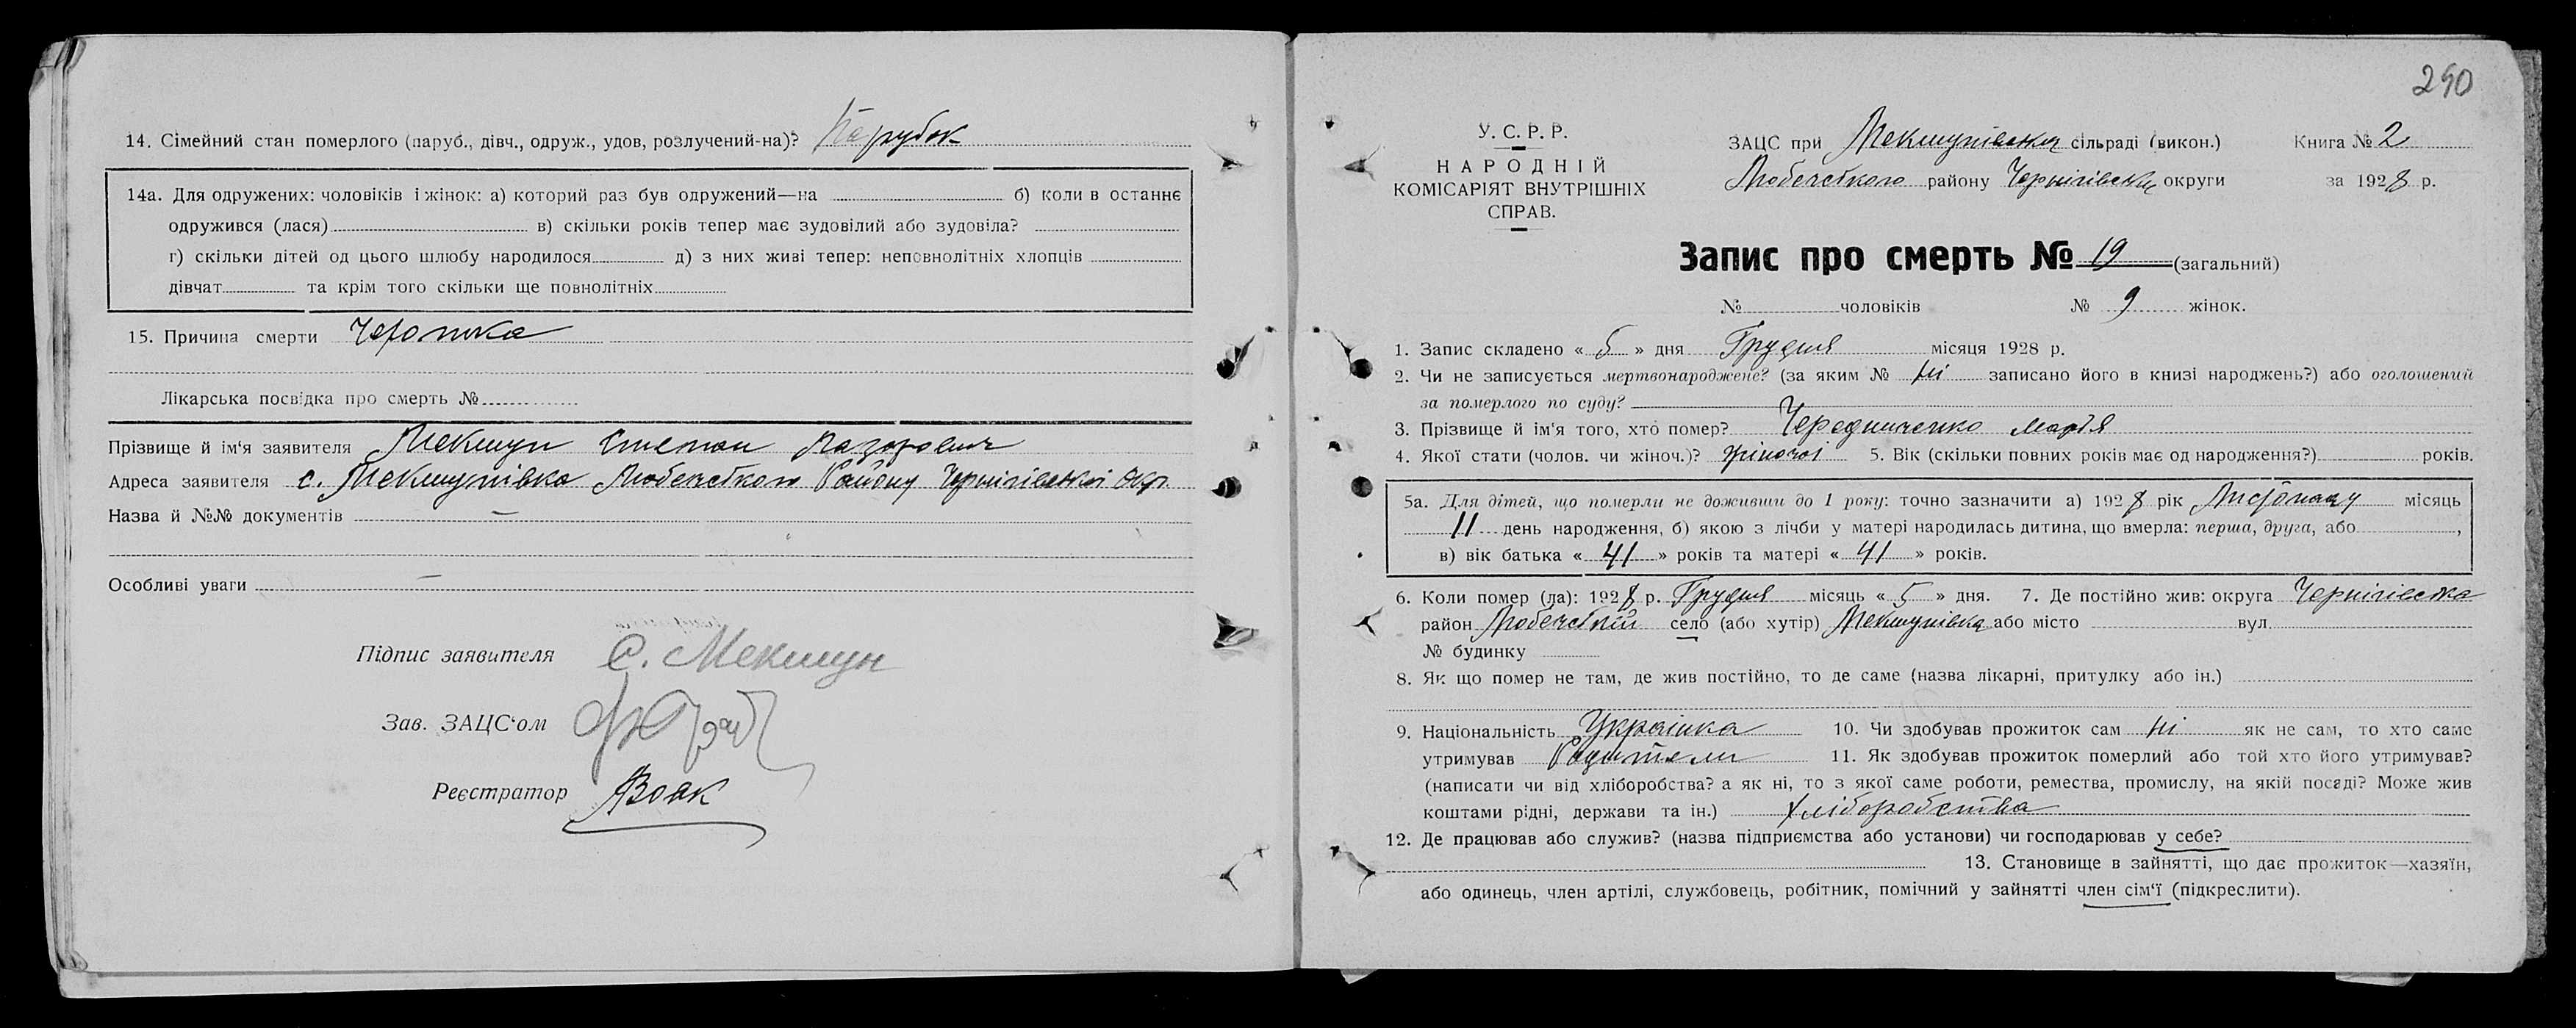 14. Сімейний стан померлого (паруб., дівч., одруж., удов, розлучений-на)? Парубок
14а. Для одружених: чоловіків і жінок: а) которий раз був одружений—на б) коли в останнє
одружився (лася) в) скільки років тепер має зудовілий або зудовіла?
г) скільки дітей од цього шлюбу народилося д) з них живі тепер: неповнолітніх хлопців
дівчат та крім того скільки ще повнолітніх
15. Причина смерти
Лікарська посвідка про смерть №
Прізвище й ім'я заявителя Мекшун Степан
Адреса заявителя с. Мекшунівка Любечського Району Чернігівської Окр.
Назва й №№ документів —
Особливі уваги —
Підпис заявителя С. Мекшун
Зав. ЗАЦС'ом
Реєстратор Вовк
290
У. С. Р. Р.
НАРОДНІЙ
КОМІСАРІЯТ ВНУТРІШНІХ
СПРАВ.
ЗАЦС при Мекшунівській сільраді (викон.) Книга № 2
Любечського району Чернігівської округи за 1928 р.
Запис про смерть № 19 (загальний)
№ чоловіків № 9 жінок.
1. Запис складено « 5 » дня Грудня місяця 1928 р.
2. Чи не записується мертвонароджене? (за яким № ні записано його в книзі народжень?) або оголошений
за померлого по суду?
3. Прізвище й ім'я того, хто помер? Чередниченко Марія
4. Якої стати (чолов. чи жіноч.)? жіночої 5. Вік (скільки повних років має од народження?) років.
5а. Для дітей, що померли не доживши до 1 року: точно зазначити а) 1928 рік Листопаду місяць
11 день народження, б) якою з лічби у матері народилась дитина, що вмерла: перша, друга, або ,
в) вік батька « 41 » років та матері « 41 » років.
6. Коли помер (ла): 1928 р. Грудня місяць « 5 » дня. 7. Де постійно жив: округа Чернігівська
район Любечський село (або хутір) Мекшунівка або місто вул.
№ будинку
8. Як що помер не там, де жив постійно, то де саме (назва лікарні, притулку або ін.)
9. Національність Українка 10. Чи здобував прожиток сам ні як не сам, то хто саме
утримував Родители 11. Як здобував прожиток померлий або той хто його утримував?
(написати чи від хліборобства? а як ні, то з якої саме роботи, ремества, промислу, на якій посаді? Може жив
коштами рідні, держави та ін.) хліборобства
12. Де працював або служив? (назва підприємства або установи) чи господарював у себе?
13. Становище в зайнятті, що дає прожиток—хазяїн,
або одинець, член артілі, службовець, робітник, помічний у зайнятті член сім'ї (підкреслити).